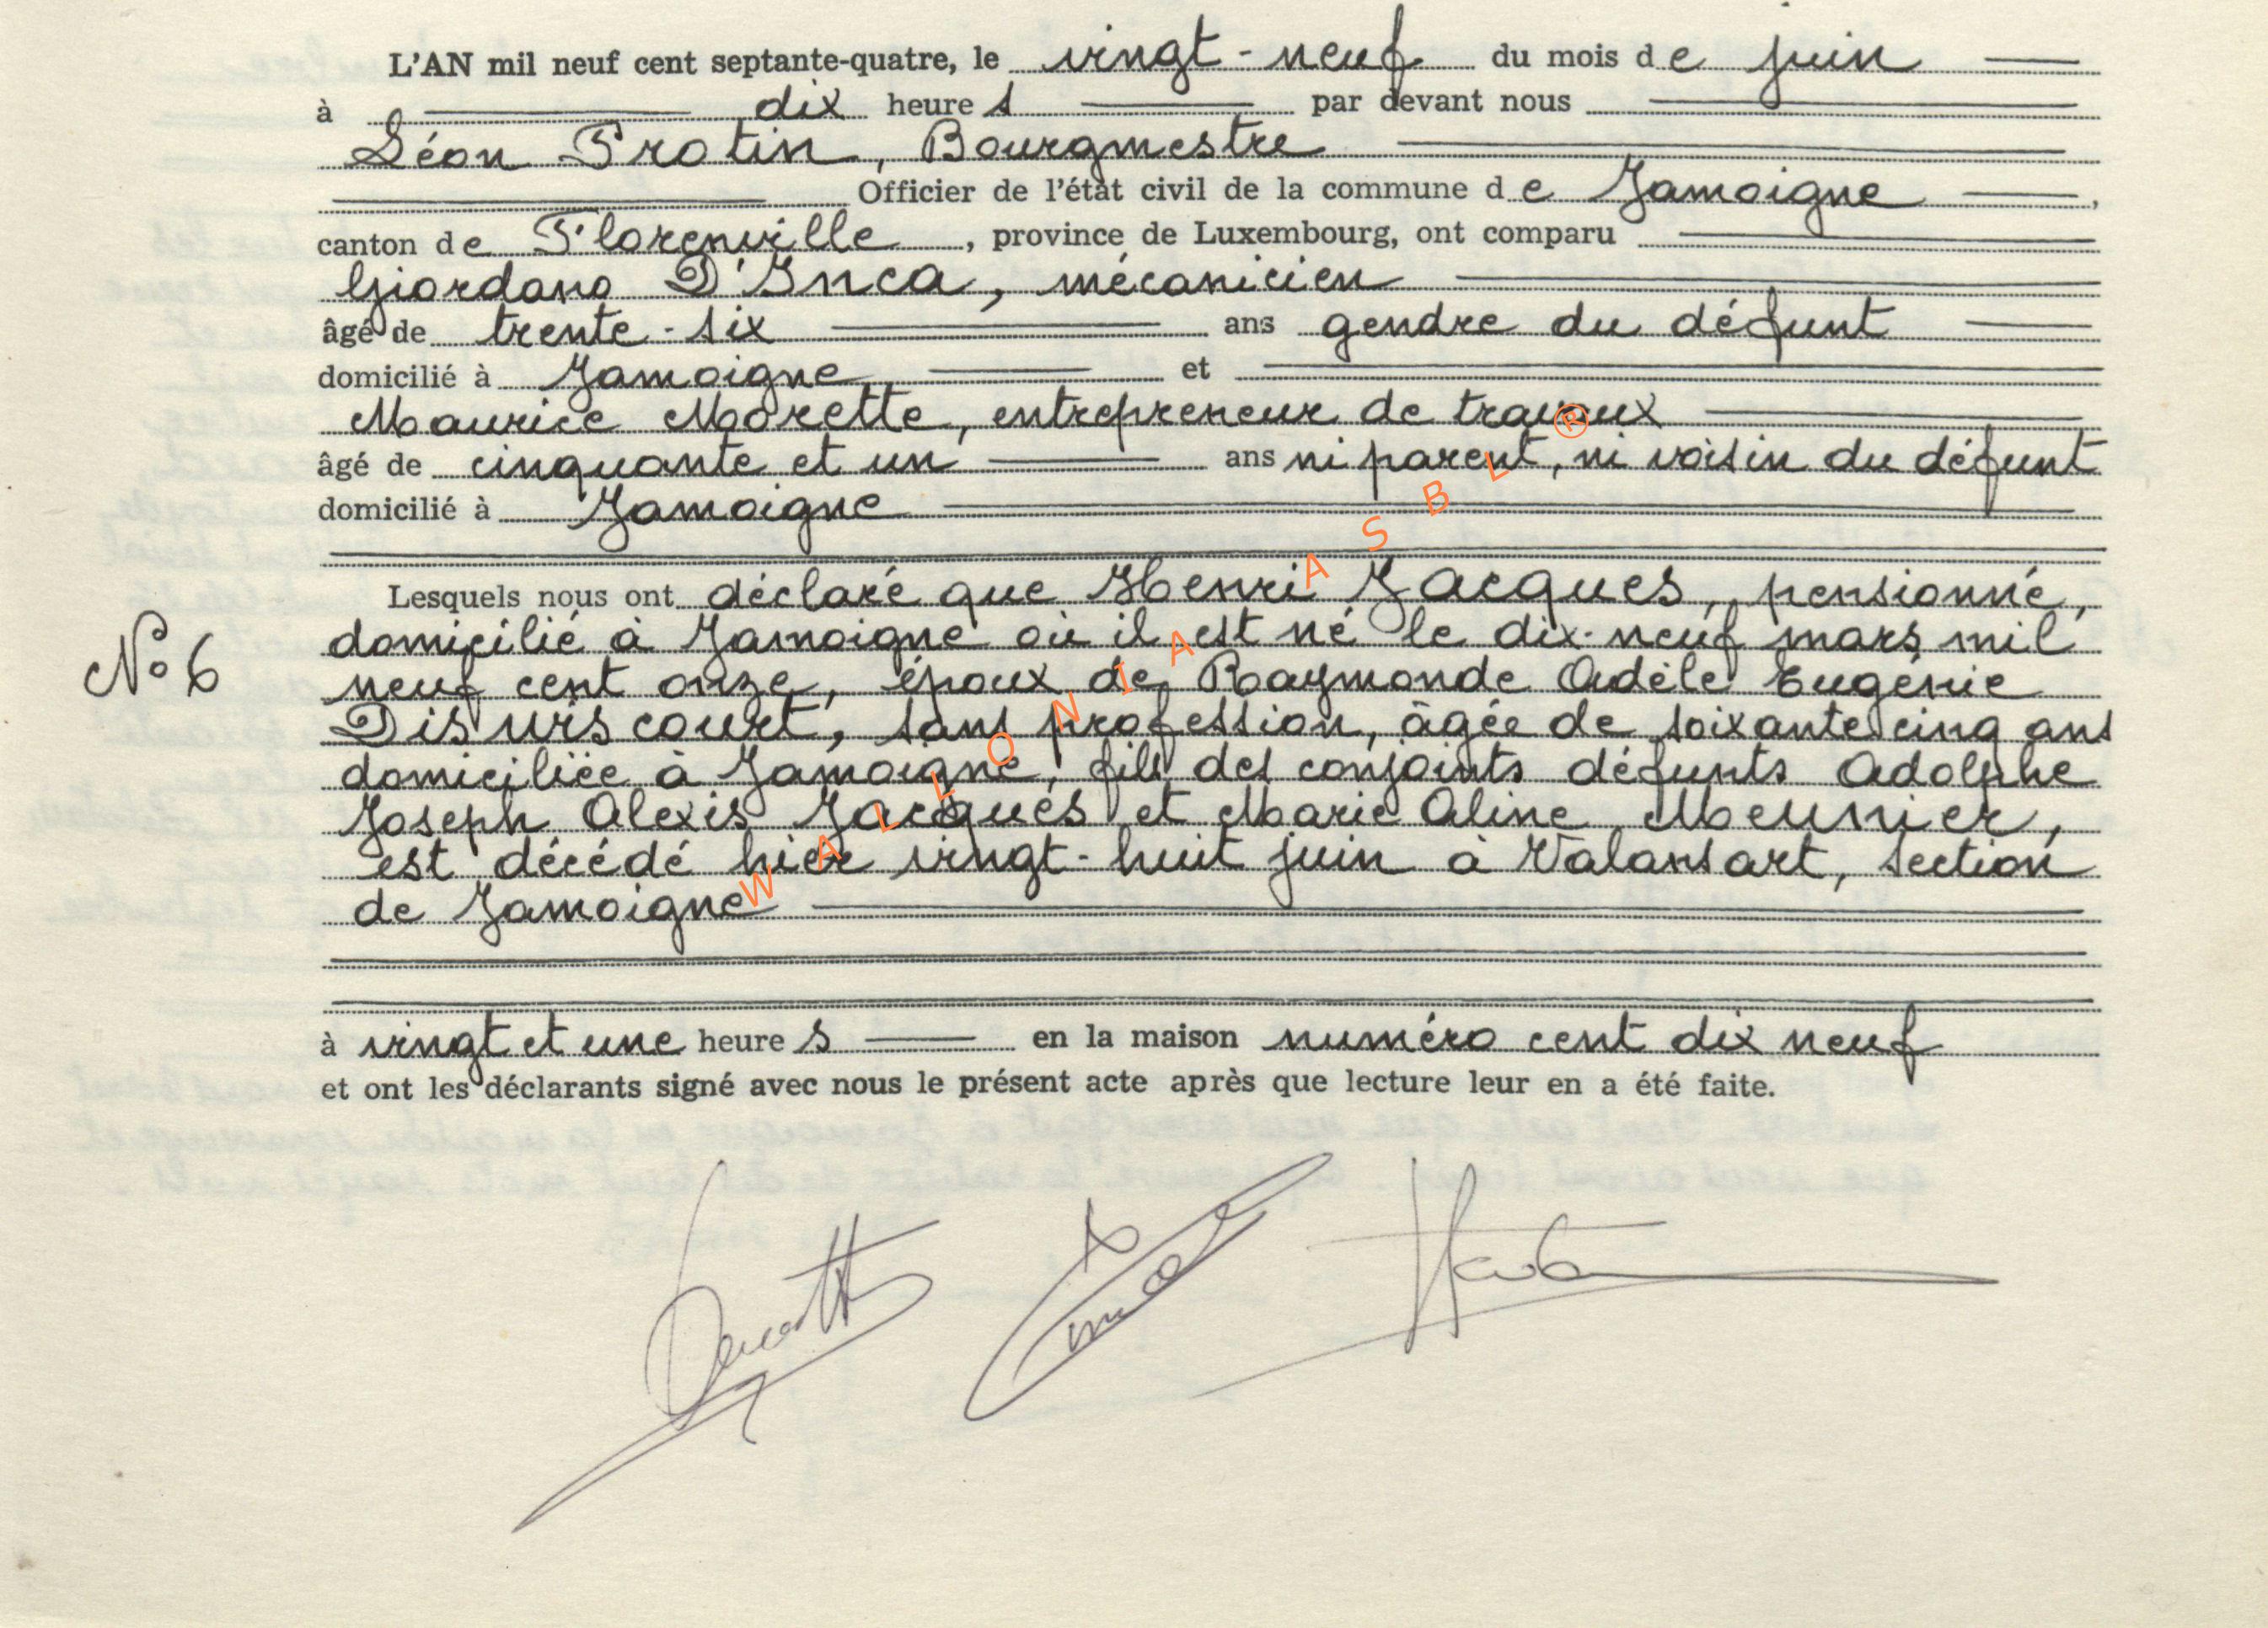 L'AN mil neuf cent septante-quatre, le vingt-neuf du mois de juin
à dix heures par devant nous
Léon Frotin, Bourgmestre
Officier de l'état civil de la commune de Jamoigne,
canton de Florenville, province de Luxembourg, ont comparu
Giordano D'Inca, mécanicien
âgé de trente-six ans gendre du défunt
domicilié à Jamoigne et
Maurice Morette, entrepreneur de travaux
âgé de cinquante et un ans ni parent, ni voisin du défunt
domicilié à Jamoigne
Lesquels nous ont déclaré que Henri Jacques, pensionné,
N° 6
domicilié à Jamoigne où il est né le dix-neuf mars mil
neuf cent onze, époux de Raymonde Adèle Eugénie
Disviscourt, sans profession, âgée de soixante cinq ans
domiciliée à Jamoigne, fils des conjoints défunts Adolphe
Joseph Alexis Jacques et Marie Aline Meunier,
est décédé hier vingt-huit juin à Valansart, section
de Jamoigne
à vingt et une heures en la maison numéro cent dix neuf
et ont les déclarants signé avec nous le présent acte après que lecture leur en a été faite.
WALLONIA ASBL ®